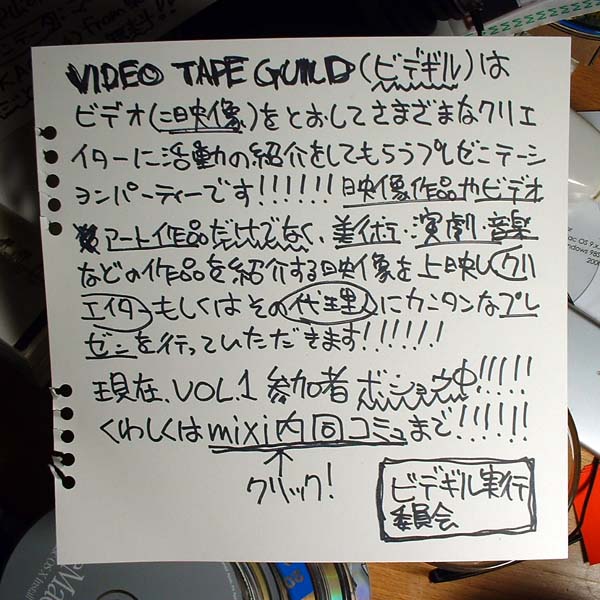 VIDEO TAPE GUILD(ビデギル)は
ビデオ(=映像)をとおしてさまざまなクリエ
イターに活動の紹介をしてもらうプレゼンテーシ
ョンパーティーです!!!!!! 映像作品やビデオ
アート作品だけでなく、美術・演劇・音楽
などの作品を紹介する映像を上映しクリ
エイターもしくはその代理人にカンタンなプレ
ゼンを行っていただきます!!!!!!
現在、VOL.1 参加者 ボシュウ中!!!!!
くわしくはmixi内同コミュまで!!!!!!
↑
クリック!
ビデギル実行
委員会
Mac OS 9.x